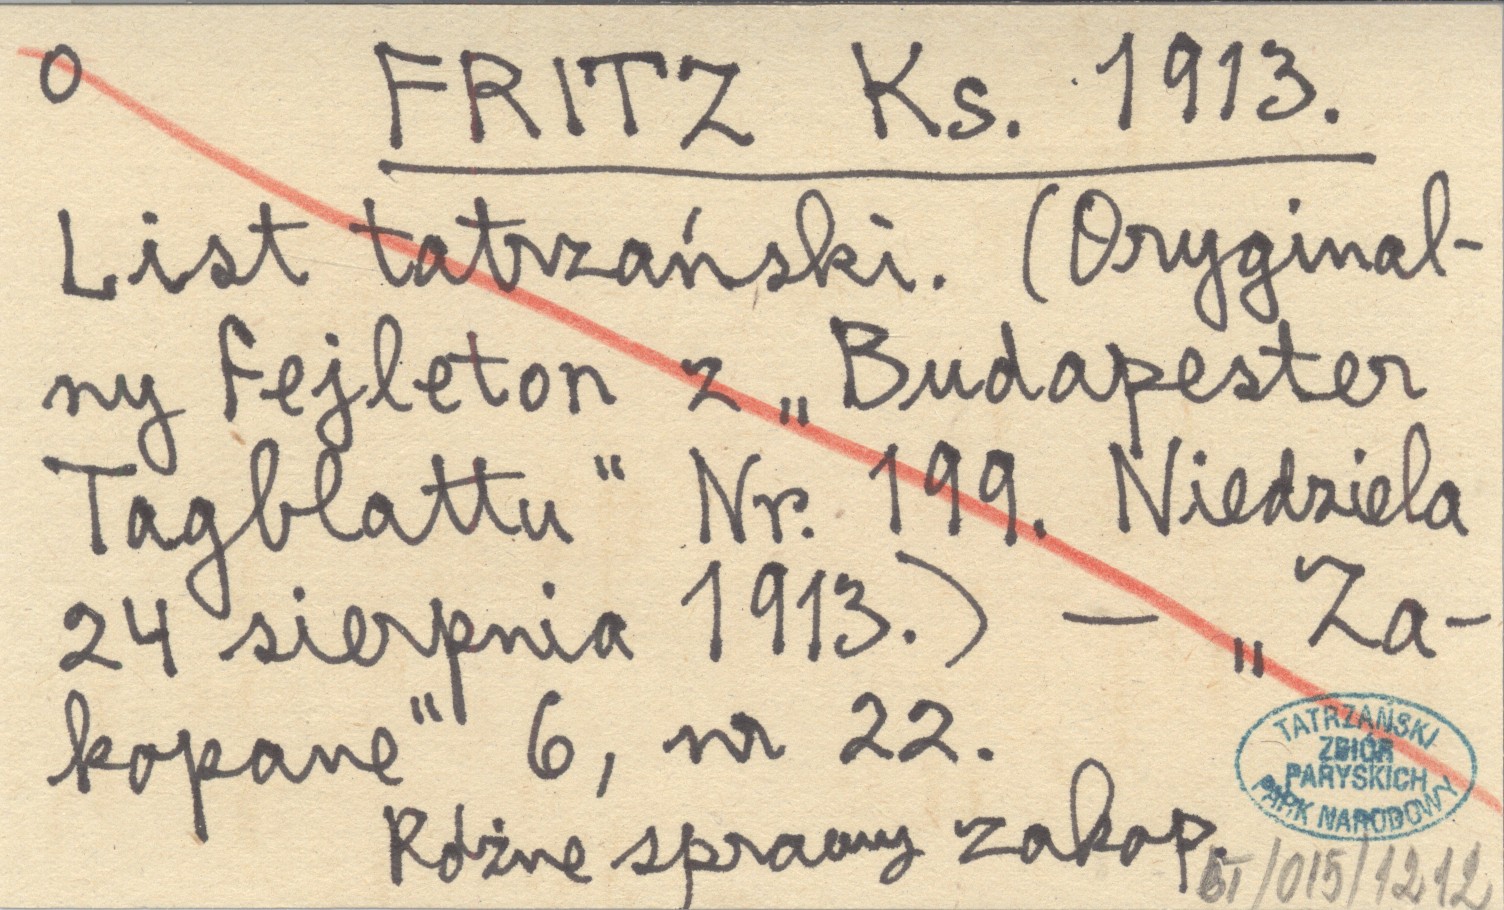 O FRITZ Ks. 1913.
List tatrzański. (Oryginal-
ny fejleton z „Budapester
Tagblattu" Nr. 199. Niedziela
24 sierpnia 1913.) — „Za-
kopane" 6, nr 22.
Różne sprawy zakop.
TATRZAŃSKI
ZBIÓR
PARYSKICH
PARK NARODOWY
/015/1212